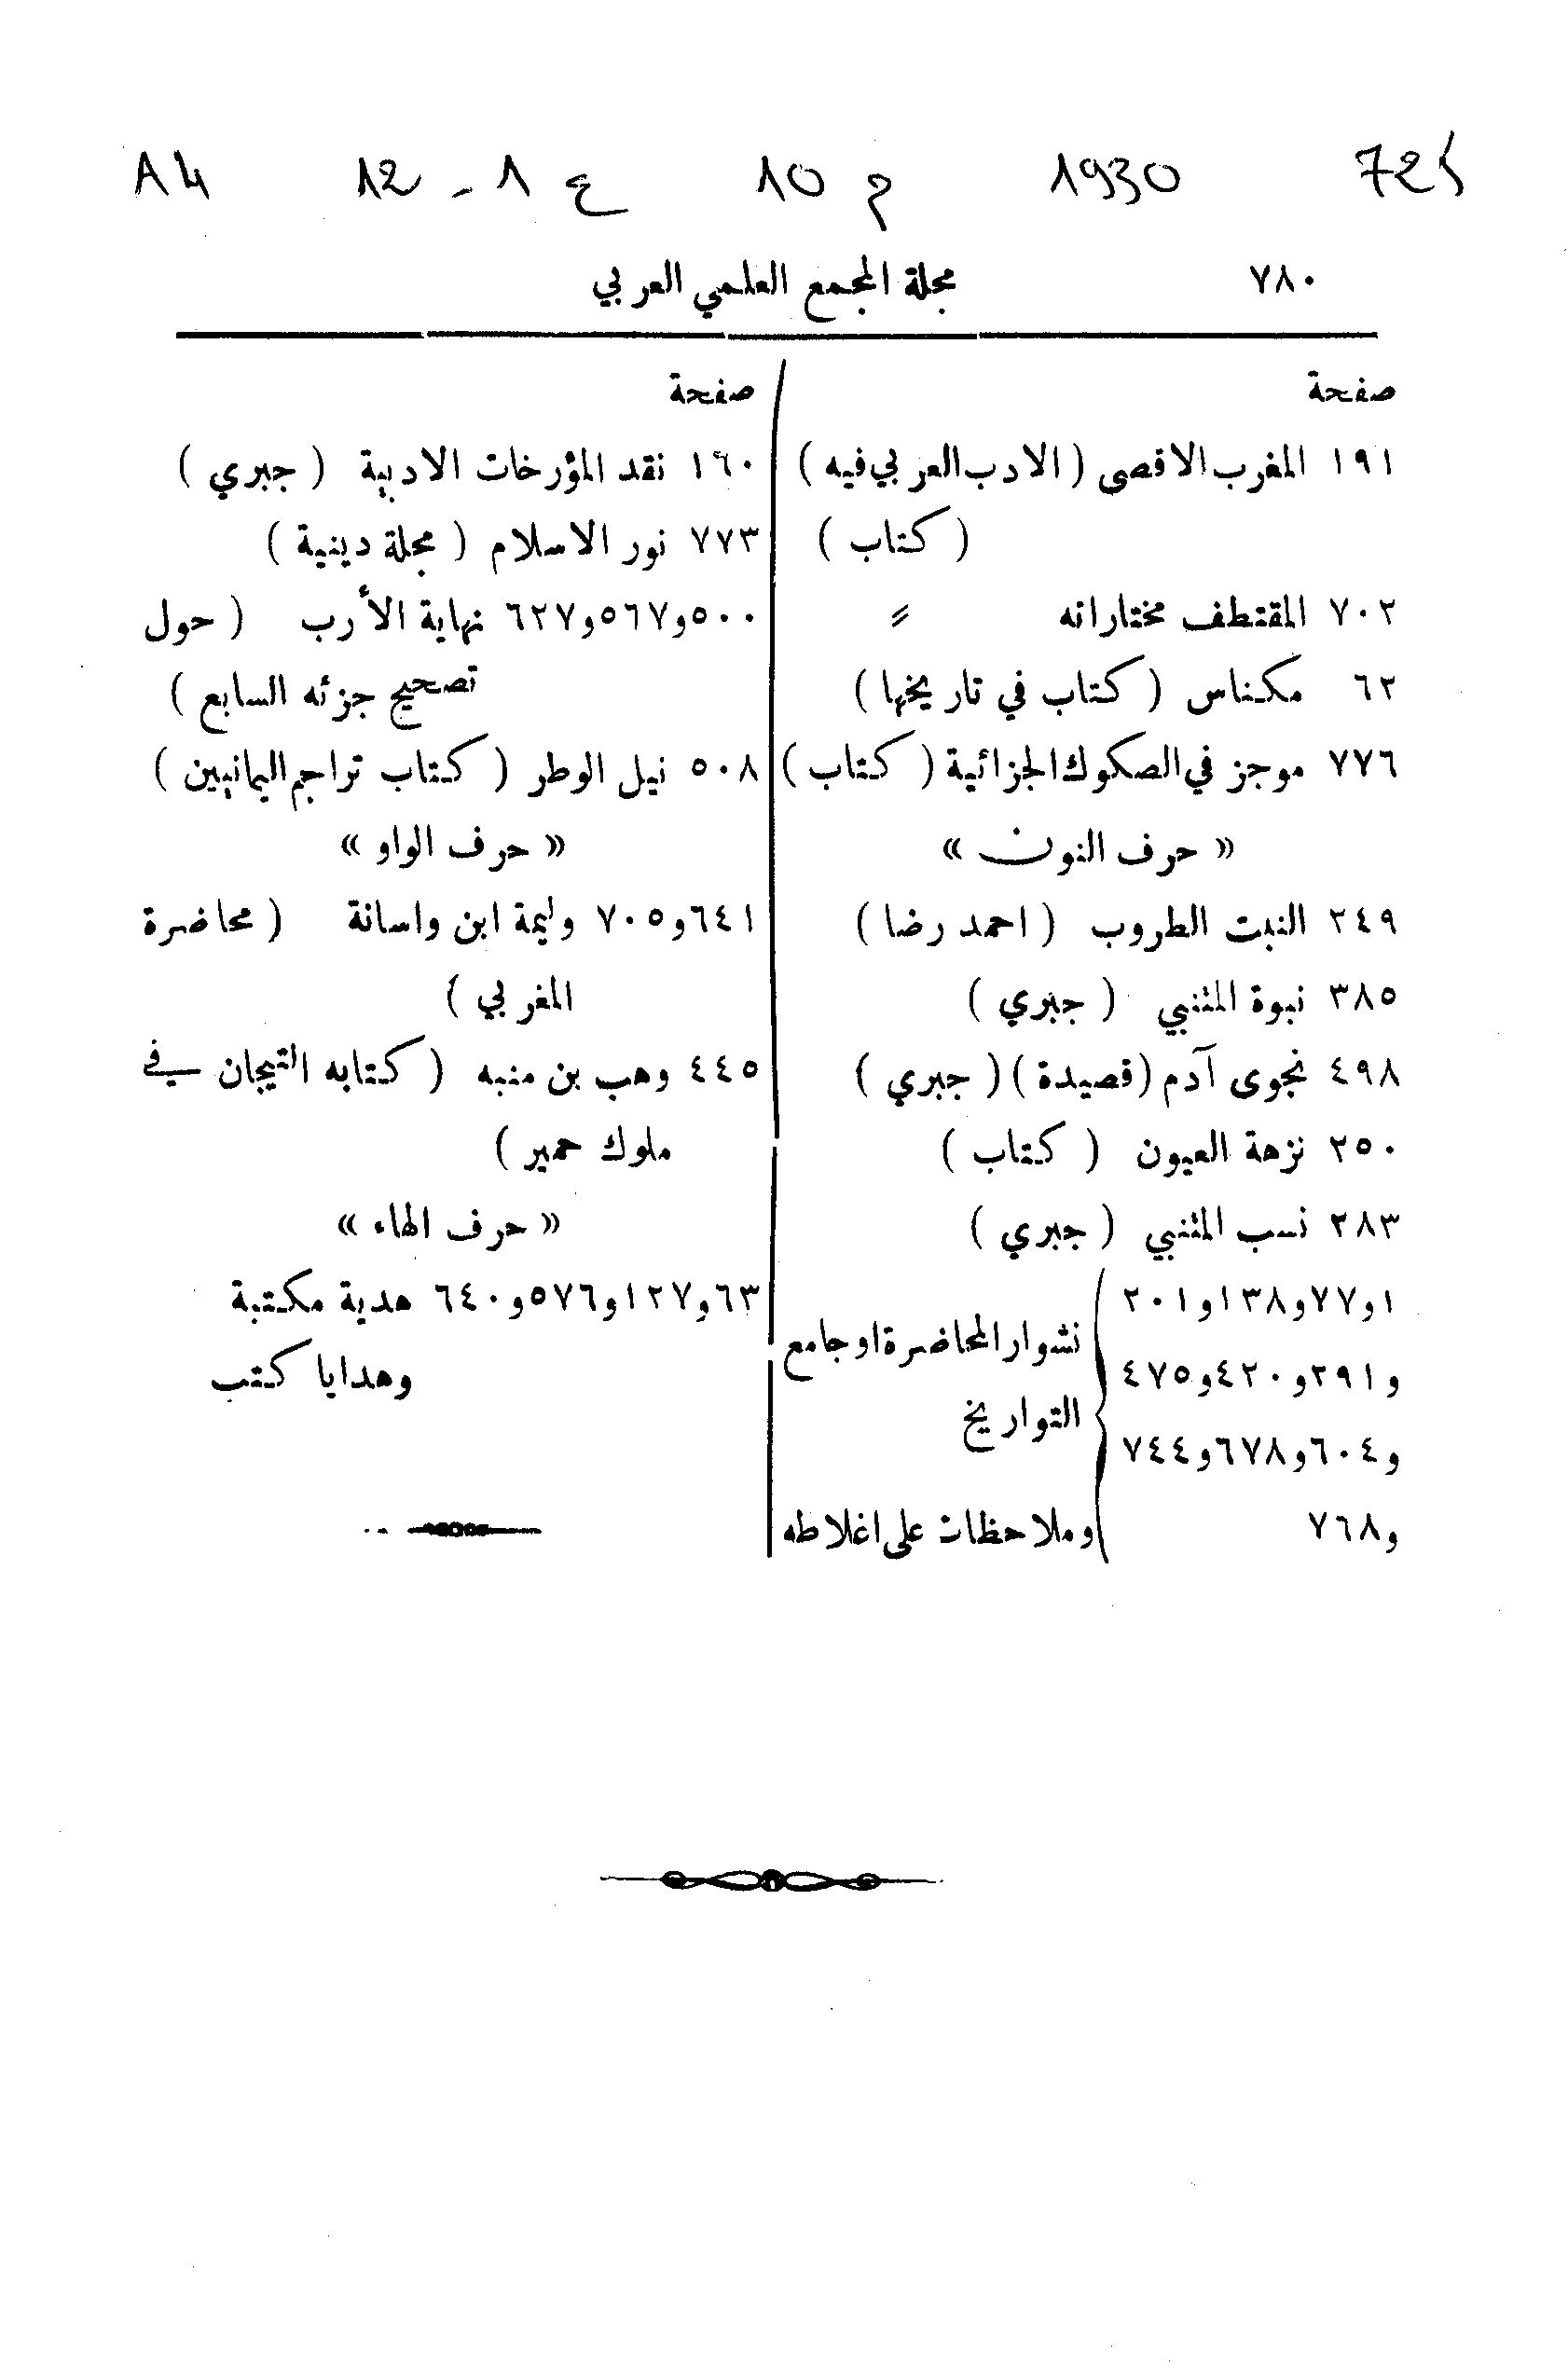 1930 م 10 ع 1 - 12 A4
٧٨٠ مجلة المجمع العلمي العربي
صفحة
١٩١ المغرب الاقصى (الادب العربي فيه)
(كتاب)
٧٠٢ المقتطف مختاراته ״
٦٢ مكناس (كتاب في تاريخها)
٧٧٦ موجز في الصكوك الجزائية (كتاب)
« حرف النون »
٢٤٩ النبت الطروب (احمد رضا)
٣٨٥ نبوة المتنبي (جبري)
٤٩٨ نجوى آدم (قصيدة) (جبري)
٢٥٠ نزهة العيون (كتاب)
٢٨٣ نسب المتنبي (جبري)
١و٧٧و١٣٨و٢٠١
نشوار المحاضرة او جامع
و٢٩١و٤٢٠و٤٧٥
التواريخ
و٦٠٤و٦٧٨و٧٤٤
و٧٦٨ وملاحظات على اغلاطه
صفحة
١٦٠ نقد المؤرخات الادبية (جبري)
٧٧٣ نور الاسلام (مجلة دينية)
٥٠٠و٥٦٧و٦٢٧ نهاية الأرب (حول
تصحيح جزئه السابع)
٥٠٨ نيل الوطر (كتاب تراجم اليمانيين)
« حرف الواو »
٦٤١و٧٠٥ وليمة ابن واسانة (محاضرة
المغربي)
٤٤٥ وهب بن منبه (كتابه التيجان في
ملوك حمير)
« حرف الهاء »
٦٣و١٢٧و٥٧٦و٦٤٠ هدية مكتبة
وهدايا كتب